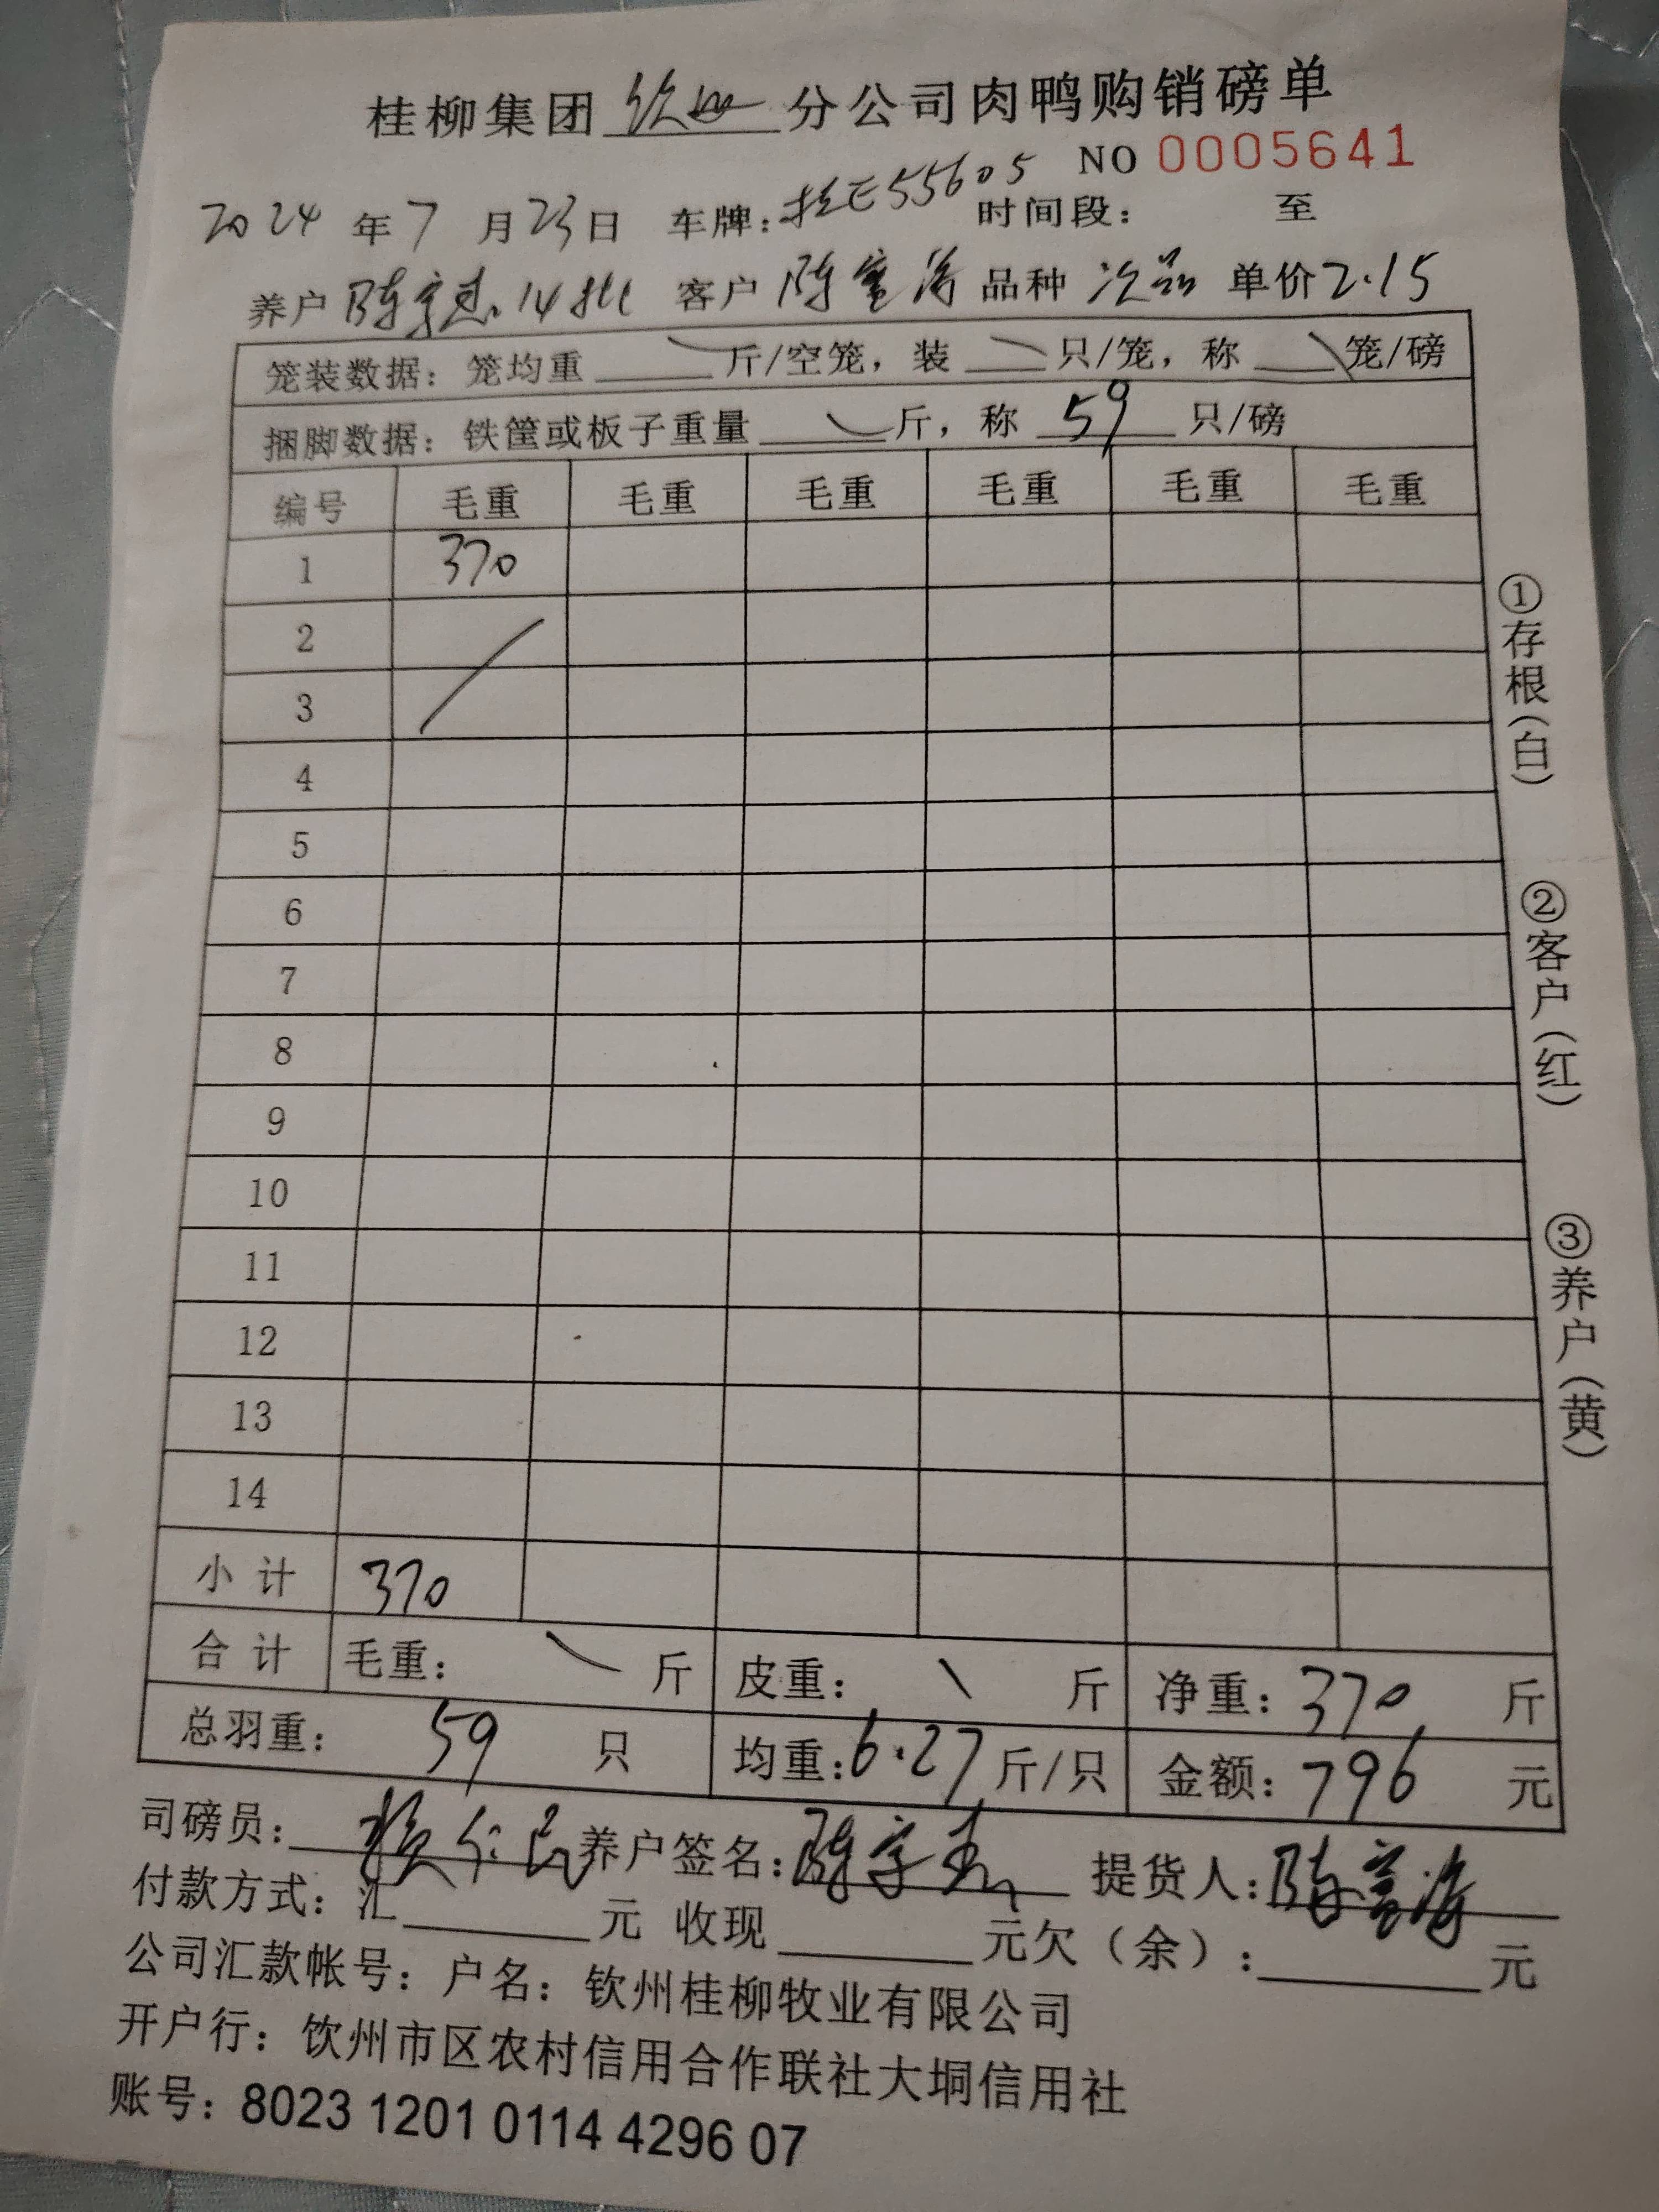 桂柳集团 钦州 分公司肉鸭购销磅单
NO 0005641
2024 年 7 月 23 日 车牌: 桂E55605 时间段: 至
养户 陈宇杰 14批 客户 陈富海 品种 次品 单价 2.15
笼装数据: 笼均重 斤/空笼, 装 只/笼, 称 笼/磅
捆脚数据: 铁筐或板子重量 斤, 称 59 只/磅
编号 毛重 毛重 毛重 毛重 毛重 毛重
1 370
2
3
4
5
6
7
8
9
10
11
12
13
14
小计 370
合计 毛重: 斤 皮重: 斤 净重: 370 斤
总羽重: 59 只 均重: 6.27 斤/只 金额: 796 元
①存根(白)
②客户(红)
③养户(黄)
司磅员: 养户签名: 陈宇杰 提货人: 陈富海
付款方式: 汇 元 收现 元欠(余): 元
公司汇款帐号: 户名: 钦州桂柳牧业有限公司
开户行: 饮州市区农村信用合作联社大垌信用社
账号: 8023 1201 0114 4296 07